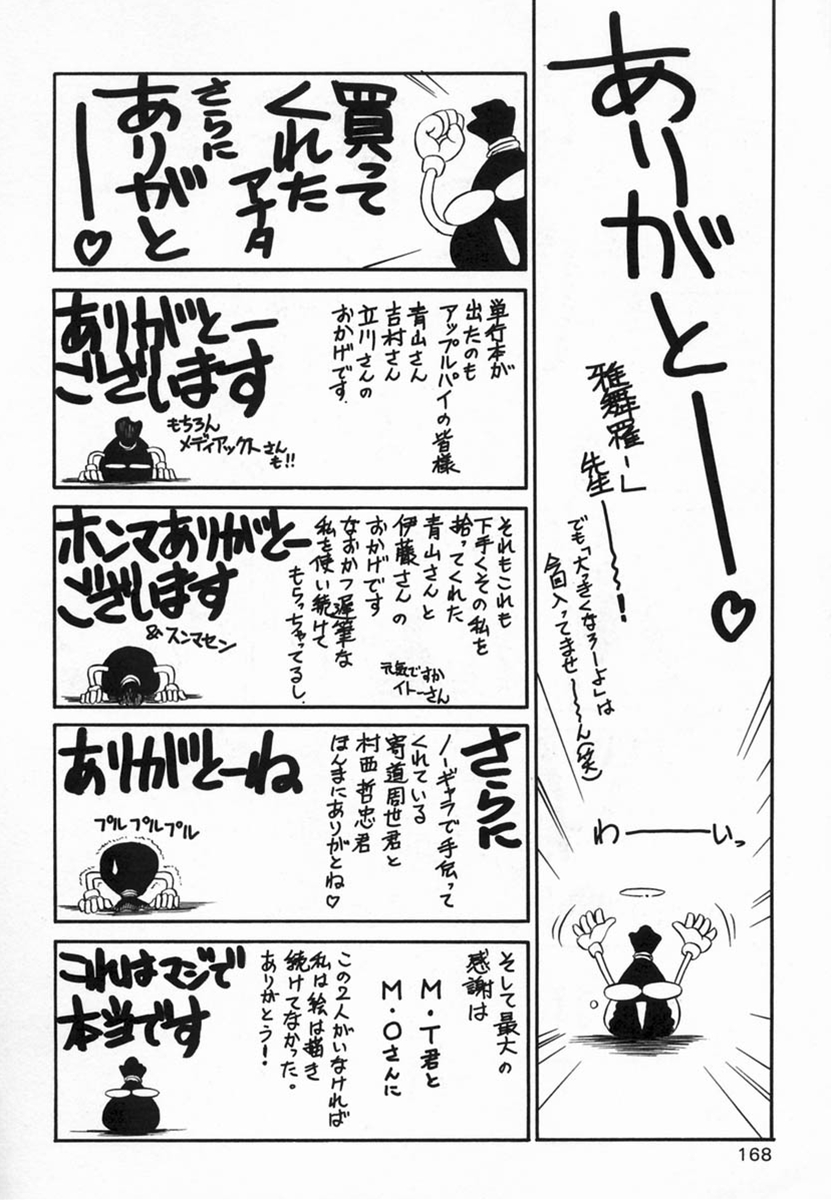 ありがとー♡
雅舞羅ー」
先生ー～～!
でも「大っきくなろーよ」は
今回入ってませー～～ん(笑)
わーーいっ
買って
くれた
アナタ
さらに
ありがと
ー♡
単行本が
出たのも
アップルパイの皆様
青山さん
吉村さん
立川さんの
おかげです.
ありがとー
ございます
もちろん
メディアックスさん
も!!
それもこれも
下手くその私を
拾ってくれた
青山さんと
伊藤さんの
おかげです
なおかつ遅筆な
私を使い続けて
もらっちゃってるし.
元気ですか
イトーさん
ホンマありがとー
ございます
&スンマセン
さらに
ノーギャラで手伝って
くれている
寄道周世君と
村西哲忠君
ほんまにありがとね♡
ありがとーね
プルプルプルプル
そして最大の
感謝は
M・T君と
M・Oさんに
この2人がいなければ
私は絵は描き
続けてなかった。
ありがとう!
これはマジで
本当です
168